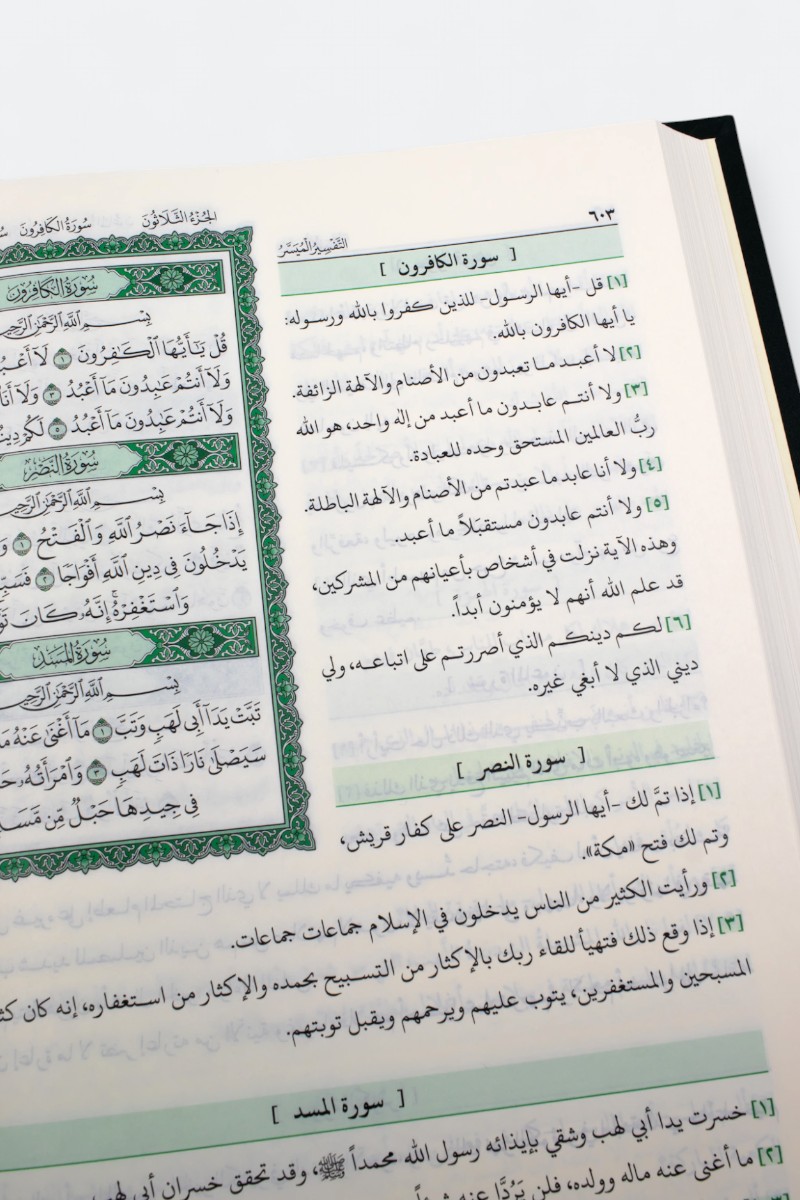 ٦٠٣
التَّفْسِيرُ الْمُيَسَّرُ
الجُزْءُ الثَّلَاثُونَ سُورَةُ الكَافِرُونَ
[ سورة الكافرون ]
[١] قل -أيها الرسول- للذين كفروا بالله ورسوله:
يا أيها الكافرون بالله.
[٢] لا أعبد ما تعبدون من الأصنام والآلهة الزائفة.
[٣] ولا أنتم عابدون ما أعبد من إله واحد، هو الله
ربُّ العالمين المستحق وحده للعبادة.
[٤] ولا أنا عابد ما عبدتم من الأصنام والآلهة الباطلة.
[٥] ولا أنتم عابدون مستقبَلاً ما أعبد.
وهذه الآية نزلت في أشخاص بأعيانهم من المشركين،
قد علم الله أنهم لا يؤمنون أبداً.
[٦] لكم دينكم الذي أصررتم على اتباعه، ولي
ديني الذي لا أبغي غيره.
[ سورة النصر ]
[١] إذا تمَّ لك -أيها الرسول- النصر على كفار قريش،
وتم لك فتح «مكة».
[٢] ورأيت الكثير من الناس يدخلون في الإسلام جماعات جماعات.
[٣] إذا وقع ذلك فتهيأ للقاء ربك بالإكثار من التسبيح بحمده والإكثار من استغفاره، إنه كان
المسبحين والمستغفرين، يتوب عليهم ويرحمهم ويقبل توبتهم.
[ سورة المسد ]
[١] خسرت يدا أبي لهب وشقي بإيذائه رسول الله محمداً ﷺ، وقد تحقق خسران أبي لهب
[٢] ما أغنى عنه ماله وولده، فلن يَرُدَّا عنه شيئاً
سُورَةُ الكَافِرُونَ
بِسْمِ اللَّهِ الرَّحْمَٰنِ الرَّحِيمِ
قُلْ يَٰٓأَيُّهَا ٱلْكَٰفِرُونَ ١ لَآ
وَلَآ أَنتُمْ عَٰبِدُونَ مَآ أَعْبُدُ ٣ وَلَآ أَنَا۠
وَلَآ أَنتُمْ عَٰبِدُونَ مَآ أَعْبُدُ ٥ لَكُمْ
سُورَةُ النَّصْرِ
بِسْمِ اللَّهِ الرَّحْمَٰنِ الرَّحِيمِ
إِذَا جَآءَ نَصْرُ ٱللَّهِ وَٱلْفَتْحُ ١
يَدْخُلُونَ فِى دِينِ ٱللَّهِ أَفْوَاجًا ٢
وَٱسْتَغْفِرْهُ ۚ إِنَّهُۥ كَانَ
سُورَةُ المَسَدِ
بِسْمِ اللَّهِ الرَّحْمَٰنِ الرَّحِيمِ
تَبَّتْ يَدَآ أَبِى لَهَبٍ وَتَبَّ ١ مَآ أَغْنَىٰ عَنْهُ
سَيَصْلَىٰ نَارًا ذَاتَ لَهَبٍ ٣ وَٱمْرَأَتُهُۥ
فِى جِيدِهَا حَبْلٌ مِّن